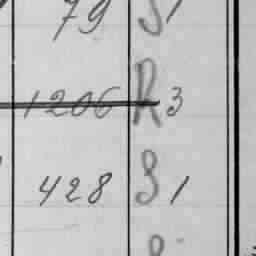 79 S 1
1206 R 3
428 S 1